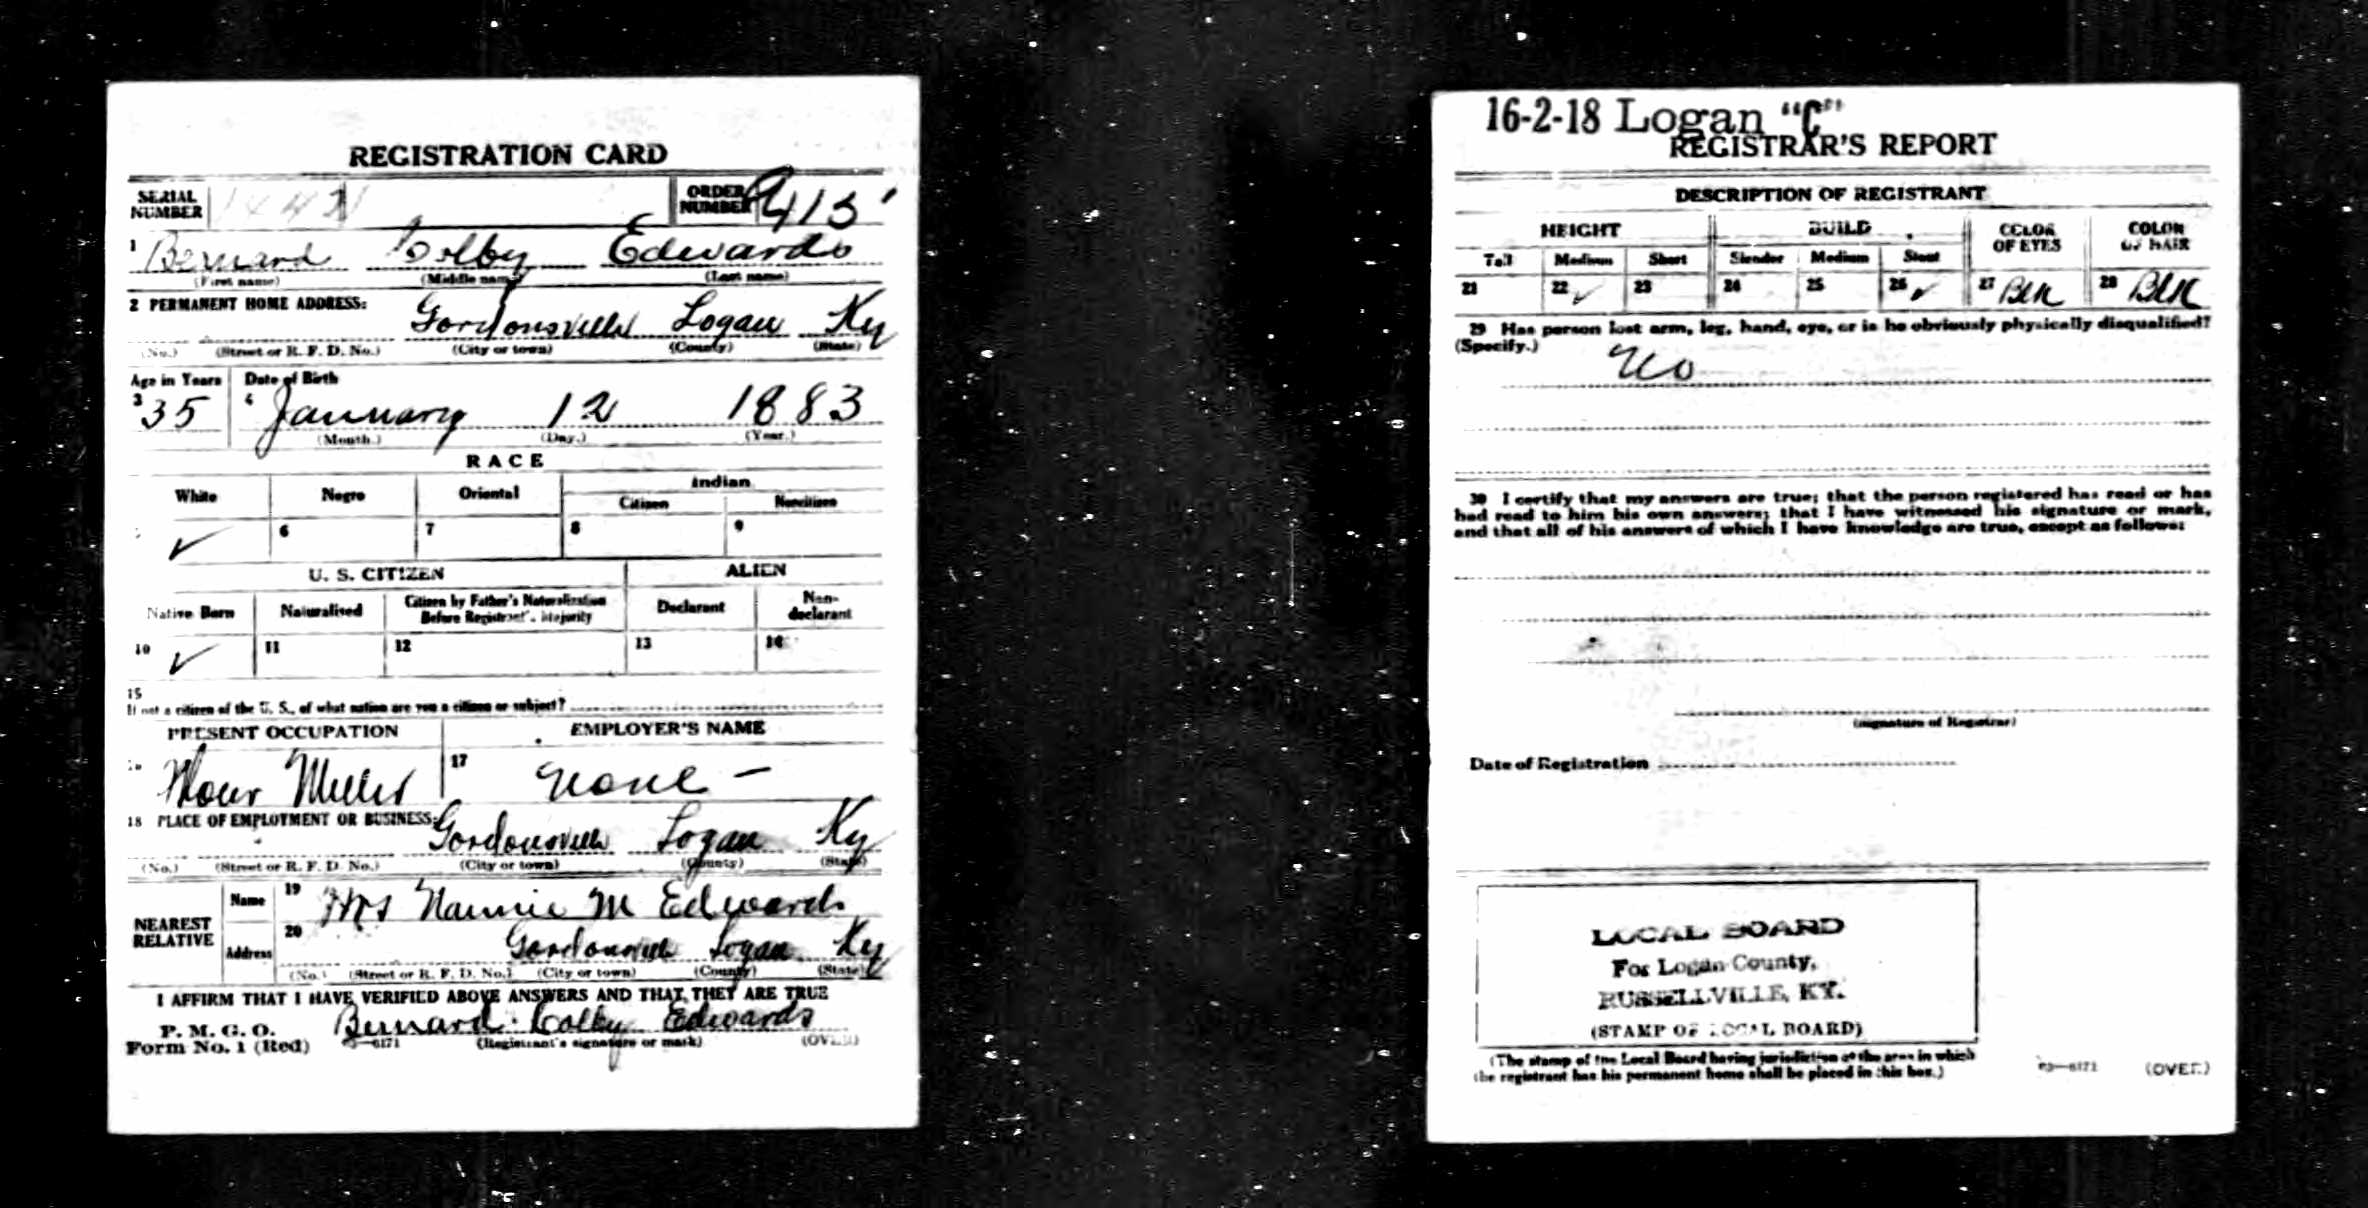 REGISTRATION CARD
SERIAL NUMBER ORDER NUMBER
1 Bernard Colby Edwards
(First name) (Middle name) (Last name)
2 PERMANENT HOME ADDRESS:
Gordonsville Logan Ky
(No.) (Street or R. F. D. No.) (City or town) (County) (State)
Age in Years Date of Birth
3 35 4 January 12 1883
(Month.) (Day.) (Year.)
RACE
White Negro Oriental Indian
Citizen Noncitizen
✓ 6 7 8 9
U. S. CITIZEN ALIEN
Native Born Naturalized Citizen by Father's Naturalization Before Registrant's Majority Declarant Non-declarant
10 ✓ 11 12 13 14
15
If not a citizen of the U. S., of what nation are you a citizen or subject?
PRESENT OCCUPATION EMPLOYER'S NAME
Miller 17 None —
18 PLACE OF EMPLOYMENT OR BUSINESS:
Gordonsville Logan Ky
(No.) (Street or R. F. D. No.) (City or town) (County) (State)
NEAREST RELATIVE
Name 19 Mrs Nannie M Edwards
Address 20 Gordonsville Logan Ky
(No.) (Street or R. F. D. No.) (City or town) (County) (State)
I AFFIRM THAT I HAVE VERIFIED ABOVE ANSWERS AND THAT THEY ARE TRUE
P. M. G. O.
Form No. 1 (Red) Bernard Colby Edwards
03—6171 (Registrant's signature or mark) (OVER)
16-2-18 Logan "C"
REGISTRAR'S REPORT
DESCRIPTION OF REGISTRANT
HEIGHT BUILD COLOR OF EYES COLOR OF HAIR
Tall Medium Short Slender Medium Stout
21 22 ✓ 23 24 25 26 ✓ 27 Blk 28 Blk
29 Has person lost arm, leg, hand, eye, or is he obviously physically disqualified?
(Specify.) No
30 I certify that my answers are true; that the person registered has read or has
had read to him his own answers; that I have witnessed his signature or mark,
and that all of his answers of which I have knowledge are true, except as follows:
(signature of Registrar)
Date of Registration
LOCAL BOARD
For Logan County,
RUSSELLVILLE, KY.
(STAMP OF LOCAL BOARD)
(The stamp of the Local Board having jurisdiction of the area in which
the registrant has his permanent home shall be placed in this box.)
03—6171 (OVER)